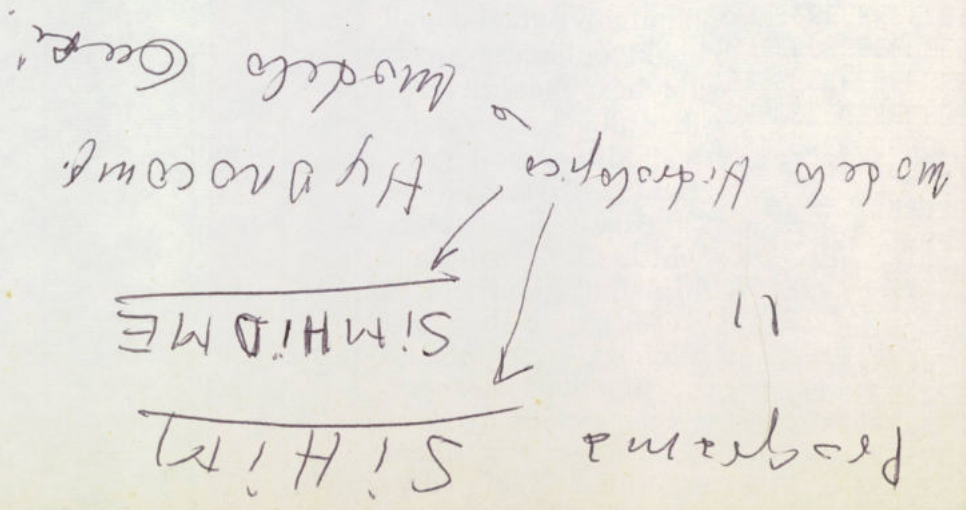 Programa SiHiM
" SiMHiDME
Modelo Hidrológico Hydrocomp.
" Modelo